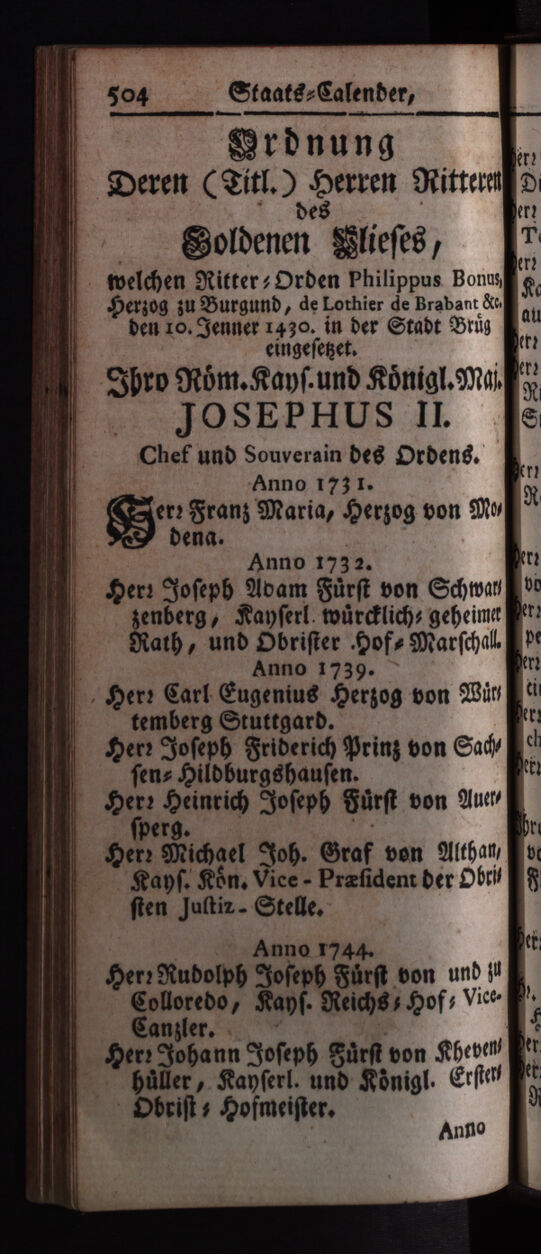 504 Staats-Calender,
Ordnung
Deren (Titl.) Herren Ritteren
des
Goldenen Vlieses,
welchen Ritter-Orden Philippus Bonus,
Herzog zu Burgund, de Lothier de Brabant &c.
den 10. Jenner 1430. in der Stadt Brüg
eingesetzet.
Ihro Röm. Kays. und Königl. Maj.
JOSEPHUS II.
Chef und Souverain des Ordens.
Anno 1731.
Herr Franz Maria, Herzog von Mo-
dena.
Anno 1732.
Herr Joseph Adam Fürst von Schwar-
zenberg, Kayserl. würcklich-geheimer
Rath, und Obrister Hof-Marschall.
Anno 1739.
Herr Carl Eugenius Herzog von Wür-
temberg Stuttgard.
Herr Joseph Friderich Prinz von Sach-
sen-Hildburgshausen.
Herr Heinrich Joseph Fürst von Auer-
sperg.
Herr Michael Joh. Graf von Althan,
Kays. Kön. Vice-Præsident der Obri-
sten Justiz-Stelle.
Anno 1744.
Herr Rudolph Joseph Fürst von und zu
Colloredo, Kays. Reichs-Hof-Vice-
Canzler.
Herr Johann Joseph Fürst von Kheven-
hüller, Kayserl. und Königl. Erster
Obrist-Hofmeister.
Anno